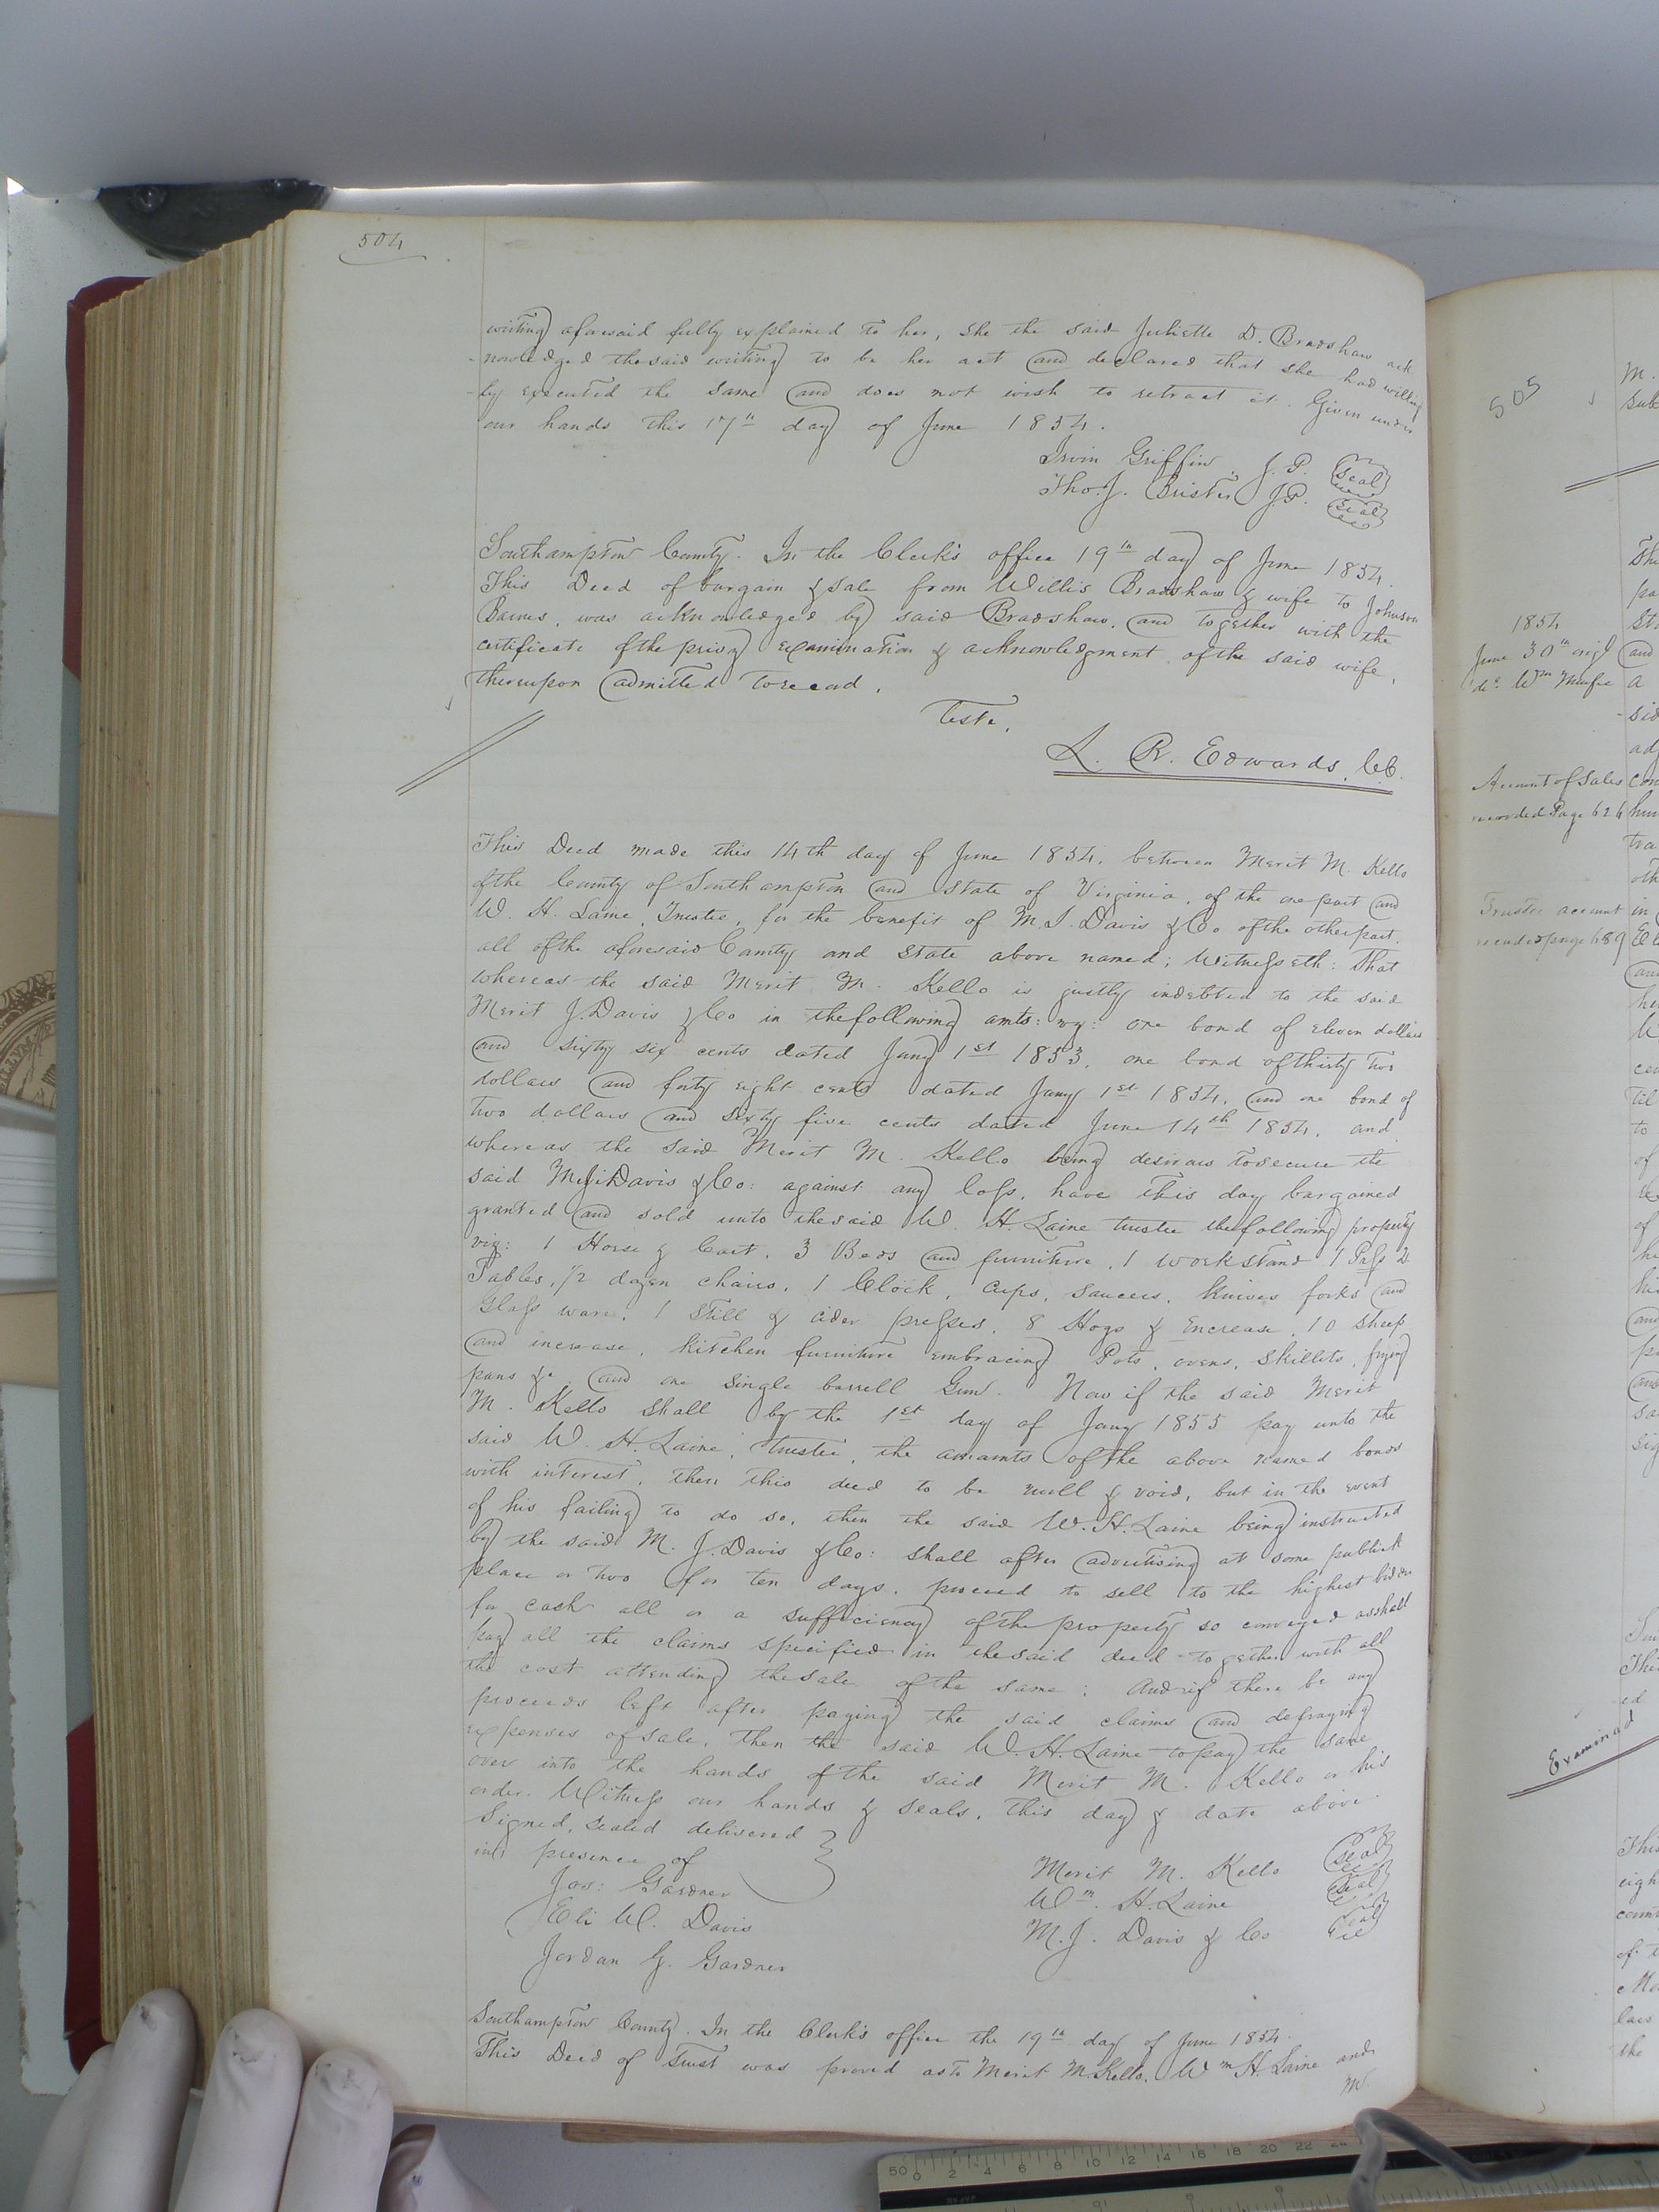 504
writing aforesaid fully explained to her, she the said Juliette D. Bradshaw ack
-nowledged the said writing to be her act and declared that she had willing
-ly executed the same and does not wish to retract it. Given under
our hands this 17th day of June 1854.
Irvin Griffin J. P. Seal
Tho. J. Brister J.P. Seal
Southampton County. In the Clerk's office 19th day of June 1854.
This Deed of bargain & sale from Willis Bradshaw & wife to Johnson
Barnes, was acknowledged by said Bradshaw, and together with the
certificate of the privy examination & acknowledgment of the said wife,
thereupon admitted to record.
Teste,
L. R. Edwards, C.C.
This Deed made this 14th day of June 1854, between Merit M. Kello
of the County of Southampton and State of Virginia, of the one part and
W. H. Laine, Trustee, for the benefit of M. J. Davis & Co of the other part,
all of the aforesaid County and State above named; Witnesseth: That
whereas the said Merit M. Kello is justly indebted to the said
Merit J. Davis & Co in the following amts: viz: one bond of eleven dollars
and sixty six cents dated Jany 1st 1853, one bond of thirty two
dollars and forty eight cents dated Jany 1st 1854, and one bond of
two dollars and sixty five cents dated June 14th 1854, and
whereas the said Merit M. Kello being desirous to secure the
said M. J. Davis & Co: against any loss, have this day bargained
granted and sold unto the said W. H. Laine trustee the following property
viz: 1 Horse & Cart, 3 Beds and furniture, 1 work stand 1
Tables, 1/2 dozen chairs, 1 Clock, Cups, Saucers, Knives forks and
Glass ware, 1 Still & cider presses, 8 Hogs & Encrease, 10 Sheep
and increase, kitchen furniture embracing Pots, ovens, skillets, frying
pans &c, and one single barrell Gun. Now if the said Merit
M. Kello shall by the 1st day of Jany 1855 pay unto the
said W. H. Laine, trustee, the amounts of the above named bonds
with interest, then this deed to be null & void, but in the event
of his failing to do so, then the said W. H. Laine being instructed
by the said M. J. Davis & Co: shall after advertising at some publick
place or two for ten days, proceed to sell to the highest bidder
for cash all or a sufficiency of the property so conveyed as shall
pay all the claims specified in the said deed together with all
the cost attending the sale of the same; And if there be any
proceeds left after paying the said claims and defraying
expenses of sale, then the said W. H. Laine to pay the same
over into the hands of the said Merit M. Kello or his
order. Witness our hands & seals, this day & date above.
Signed, sealed delivered
in presence of
Jas: Gardner
Eli W. Davis
Jordan G. Gardner
Merit M. Kello Seal
Wm. H. Laine Seal
M. J. Davis & Co Seal
Southampton County. In the Clerk's office the 19th day of June 1854.
This Deed of Trust was proved as to Merit M. Kello, Wm H. Laine and
M.
505
1854
June 30th
Account of Sales
recorded Page 626
Trustee account
recorded page 689
Examined